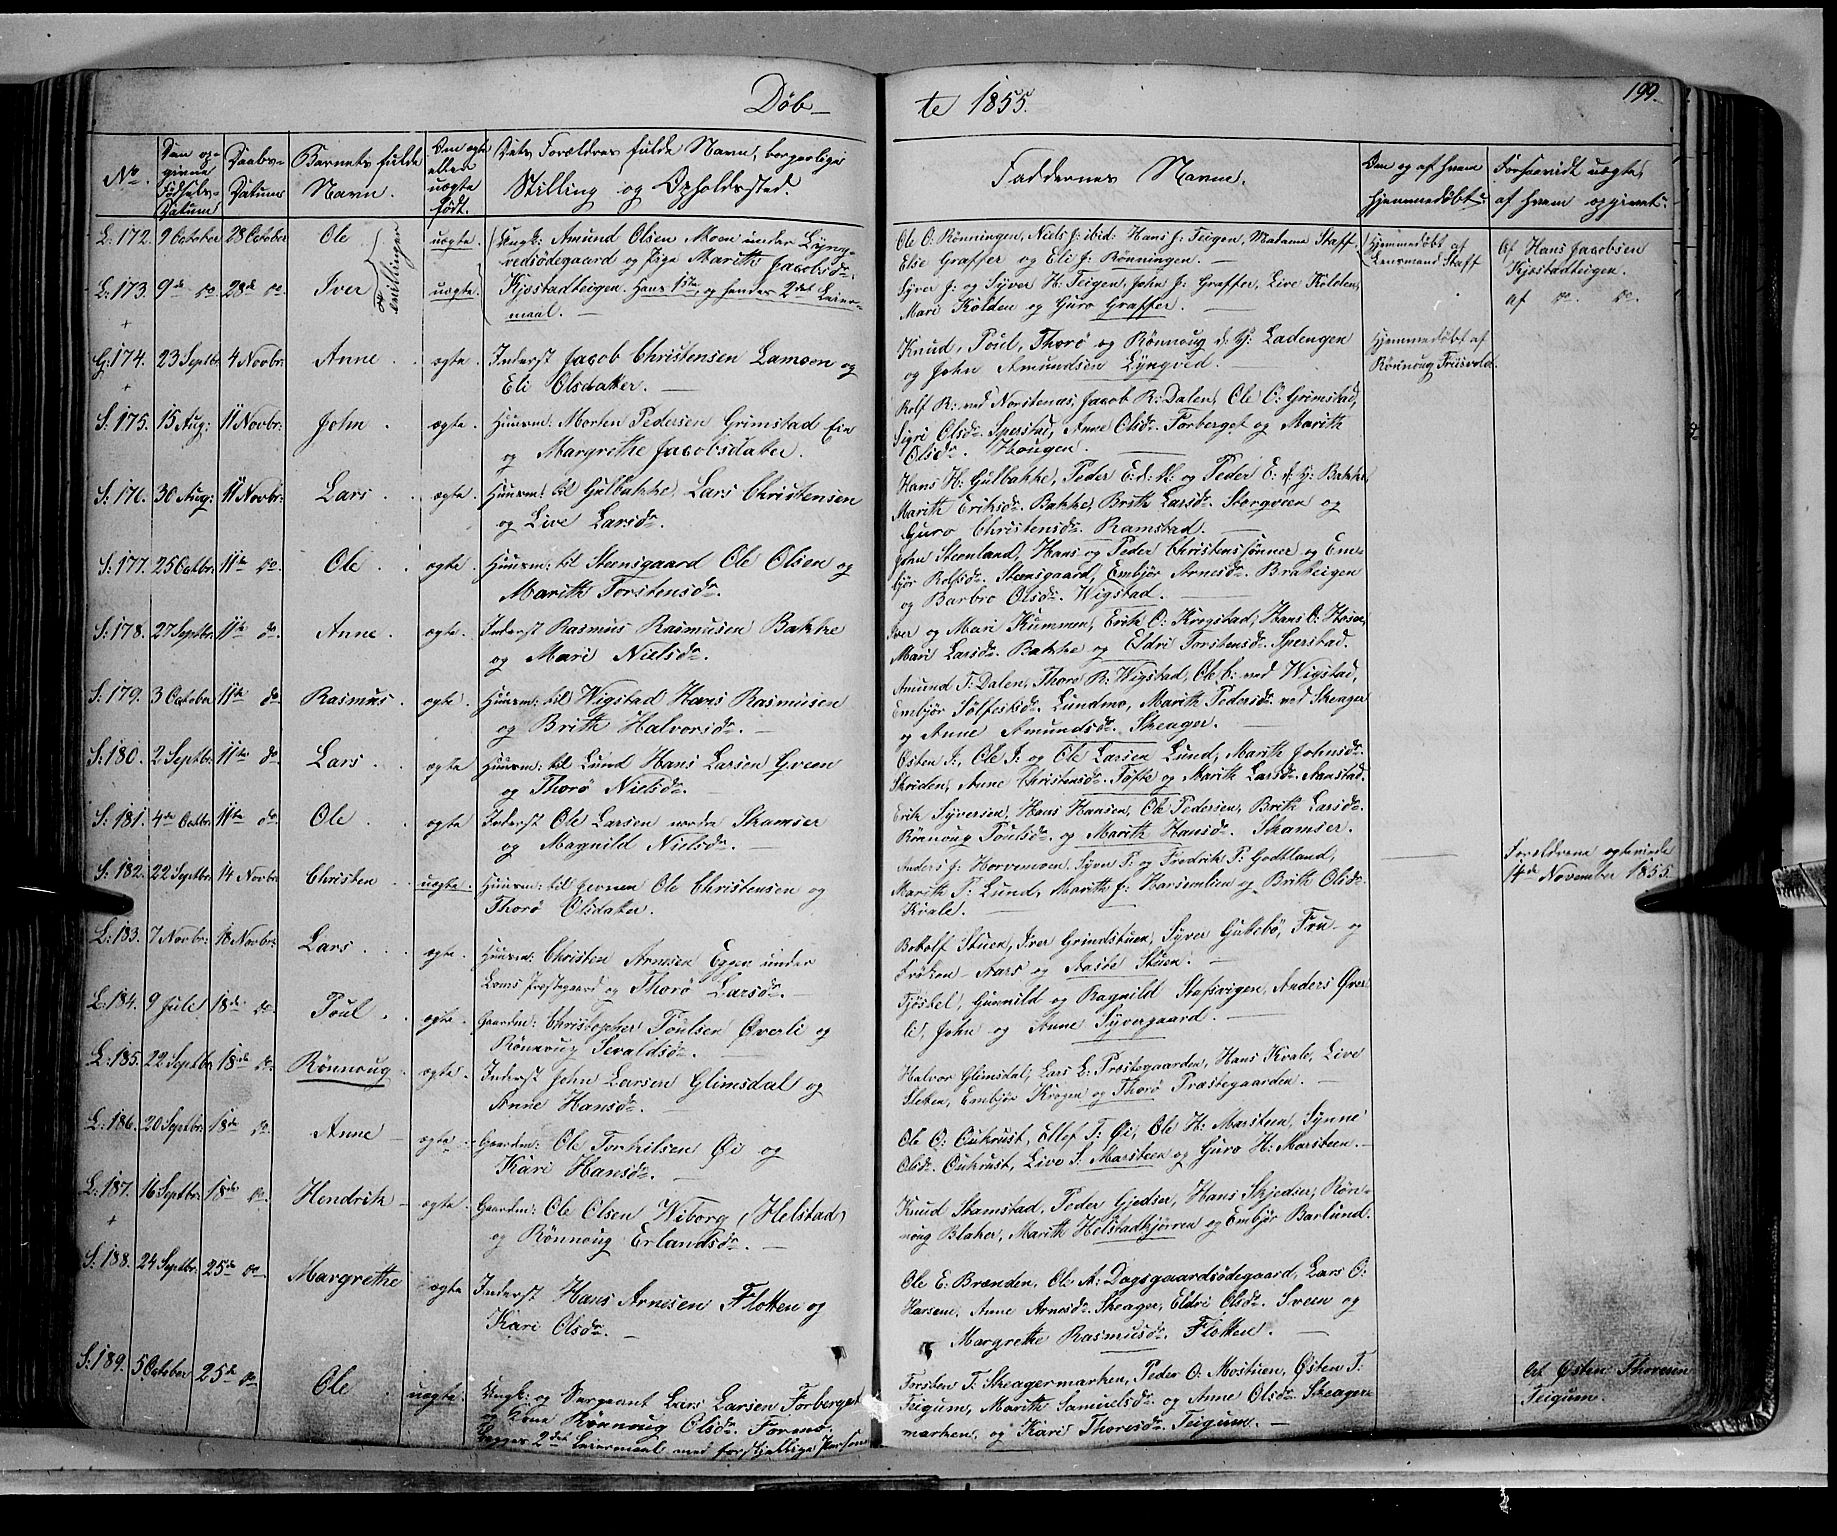 Døb-
te 1855.
199.
No.
Den op-
givne
Fødsels-
Datum
Daabs-
Datums
Barnets fulde
Navn.
Om ægte
eller
uægte
født.
Dets Forældres fulde Navn, borgerlige
Stilling og Opholdssted.
Faddernes Navne.
Om og af hvem
Hjemmedøbt:
Forsaavidt uægte,
af hvem opgivet:
L: 172. 9 October 28 October Ole uægte Ungk: Amund Olsen Moen under Lyng-
vedsødegaard og Pige Marith Jacobsdr.
Tvillinger
Ole O: Rønningen, Niels J: ibid: Hans J: Teigen, Madame Staff
Else Graffer og Eli J: Rønningen. —
Hjemmedøbt af
Lensmand Staff
Af Hans Jacobsen
Kjæstadteigen.
L: 173. 9de do 28de do. Iver uægte Kjæstadteigen. Hans 1ste, og hendes 2det Leier-
maal. —
Syver J: og Syver H: Teigen, John J: Graffer, Live Kolden,
Mari Kolden og Guro Graffer. —
af do. do.
+
G: 174. 23 Septbr. 4 Novbr. Anne. ægte. Inderst Jacob Christensen Lamoen og
Eli Olsdatter. —
Knud, Poul, Thorø og Rønnoug d: Y: Ladengen
og John Amundsen Lyngved. —
Hjemmedøbt af
Rønnoug Friisvold.
+
S: 175. 15 Aug: 11 Novbr: John. ægte. Huusm: Morten Pedersen Grimstad Eie
og Margrethe Jacobsdatter.
Rolf R: ved Norstenæs, Jacob R: Dalen, Ole O: Grimstad,
Sigri Olsdr. Sperstad, Anne Olsdr. Forberget og Marith
Olsdr. Hougen.
S: 176. 30 Aug: 11 Novbr: Lars. ægte. Huusm: til Gulbakke, Lars Christensen
og Live Larsdr.
Hans H: Gulbakke, Peder E: d: Æ: og Peder E: d: Y: Bakke,
Marith Eriksdr. Bakke, Brith Larsdr. Storgveen og
Guro Christensdr. Ramstad. —
S: 177. 25 Octbr. 11te do. Ole. ægte. Huusm: til Steensgaard Ole Olsen og
Marith Torstensdr.
John Steenland, Hans og Peder Christenssønner og Em-
bjør Rolfsdr. Steensgaard, Embjør Arnesdr. Brateigen
og Barbro Olsdr. Wigstad. —
S: 178. 27 Septbr. 11te do. Anne. ægte. Inderst Rasmus Rasmusen Bakke
og Mari Nielsdr.
Iver og Mari Kummen, Erik O: Krogstad, Hans O: Hosar,
Mari Larsdr. Bakke og Eldri Torstensdr. Sperstad.
S: 179. 3 October 11te do Rasmus. ægte. Huusm: til Wigstad Hans Rasmusen
og Brith Halvorsdr. —
Amund T: Dalen, Thore R: Wigstad, Ole E: ved Wigstad,
Embjør Sølfestsdr. Lundmo, Marith Pedersdr. ved Skeager
og Anne Amundsdr. Skeager. —
S: 180. 2 Septbr. 11te do Lars. ægte Huusm: til Lund Hans Larsen Gveen
og Thorø Nielsdr.
Østen J:, Ole J: og Ole Larsen Lund, Marith Johnsdr.
Skriden, Anne Christensdr. Tofte og Marith Larsdr. Aanstad.
S: 181. 4de Octbr. 11te do. Ole. ægte Inderst Ole Larsen nordre Skamser
og Magnild Nielsdr. —
Erik Syversen, Hans Hansen, Ole Pedersen, Brith Larsdr.
Rønnoug Poulsdr. og Marith Hansdr. Skamser.
S: 182. 22 Septbr. 14 Novbr Christen uægte. Huusm: til Ole Christensen og
Thorø Olsdatter.
Anders J: Horvemoen, Syver P: og Fredrik P: Godtland,
Marith T: Lund, Marith J: Harsemlien og Brith Olsdr.
Kvale. —
Forældrene ægteviede
14de November 1855.
L: 183. 7 Novbr: 18 Novbr: Lars. ægte. Huusm: Christen Arnesen Eggen under
Loms Præstegaard og Thorø Larsdr. —
Botolf Stuen, Iver Grindstuen, Syver Gukebø, Fru- og
Frøken Aars og Aaste Stuen. —
L: 184. 9 Juli 18de do. Poul. ægte. Gaardm: Christopher Poulsen Øverli og
Rønnoug Sevaldsdr. —
Tjøstel, Gunnild og Ragnild Stafsvigen, Anders Øver-
li, John og Anne Syvergaard. —
L: 185. 22 Septbr 18de do. Rønnoug. ægte. Inderst John Larsen Glimsdal og
Anne Hansdr. —
Halvor Glimsdal, Lars L: Præstegaarden, Hans Kvale, Live
Sletten, Embjør Krogen og Thorø Præstegaarden. —
L: 186. 20 Septbr. 18de do. Anne — ægte. Gaardm: Ole Torkilsen Øi og
Kari Hansdr. —
Ole O: Oukrust, Ellef T: Øi, Ole H: Marsteen, Synne
Olsdr. Oukrust, Live S: Marsteen og Guro H: Marsteen. —
L: 187. 16 Septbr. 18de do. Hendrik — ægte. Gaardm: Ole Olsen Wiborg (Helstad)
og Rønnoug Erlandsdr. —
Knud Stamstad, Peder Gjedser, Hans Skjedser, Røn-
noug Blaker, Marith Helstadkjørren og Embjør Barlund.
+
S: 188. 24 Septbr. 25de do — Margrethe ægte Inderst Hans Arnesen Flotten og
Kari Olsdr. —
Ole E: Brænden, Ole A: Dagsgaardsødegaard, Lars O:
Harsem, Anne Arnesdr. Skeager, Eldri Olsdr. Sveen og
Margrethe Rasmusdr. Flotten. —
S: 189. 5 October 25de do Ole uægte. Ungk: og Sergeant Lars Larsen Forberget
og Kone Rønnoug Olsdr. Forenæ.
Begges 2det Leiermaal med forskjellige Personer
Torsten T: Skeagermarken, Peder O: Mostuen, Østen T:
Teigum, Marith Samuelsdr. og Anne Olsdr. Skeager-
marken, og Kari Thoresdr. Teigum. —
Af Østen Thoresen
Teigum.